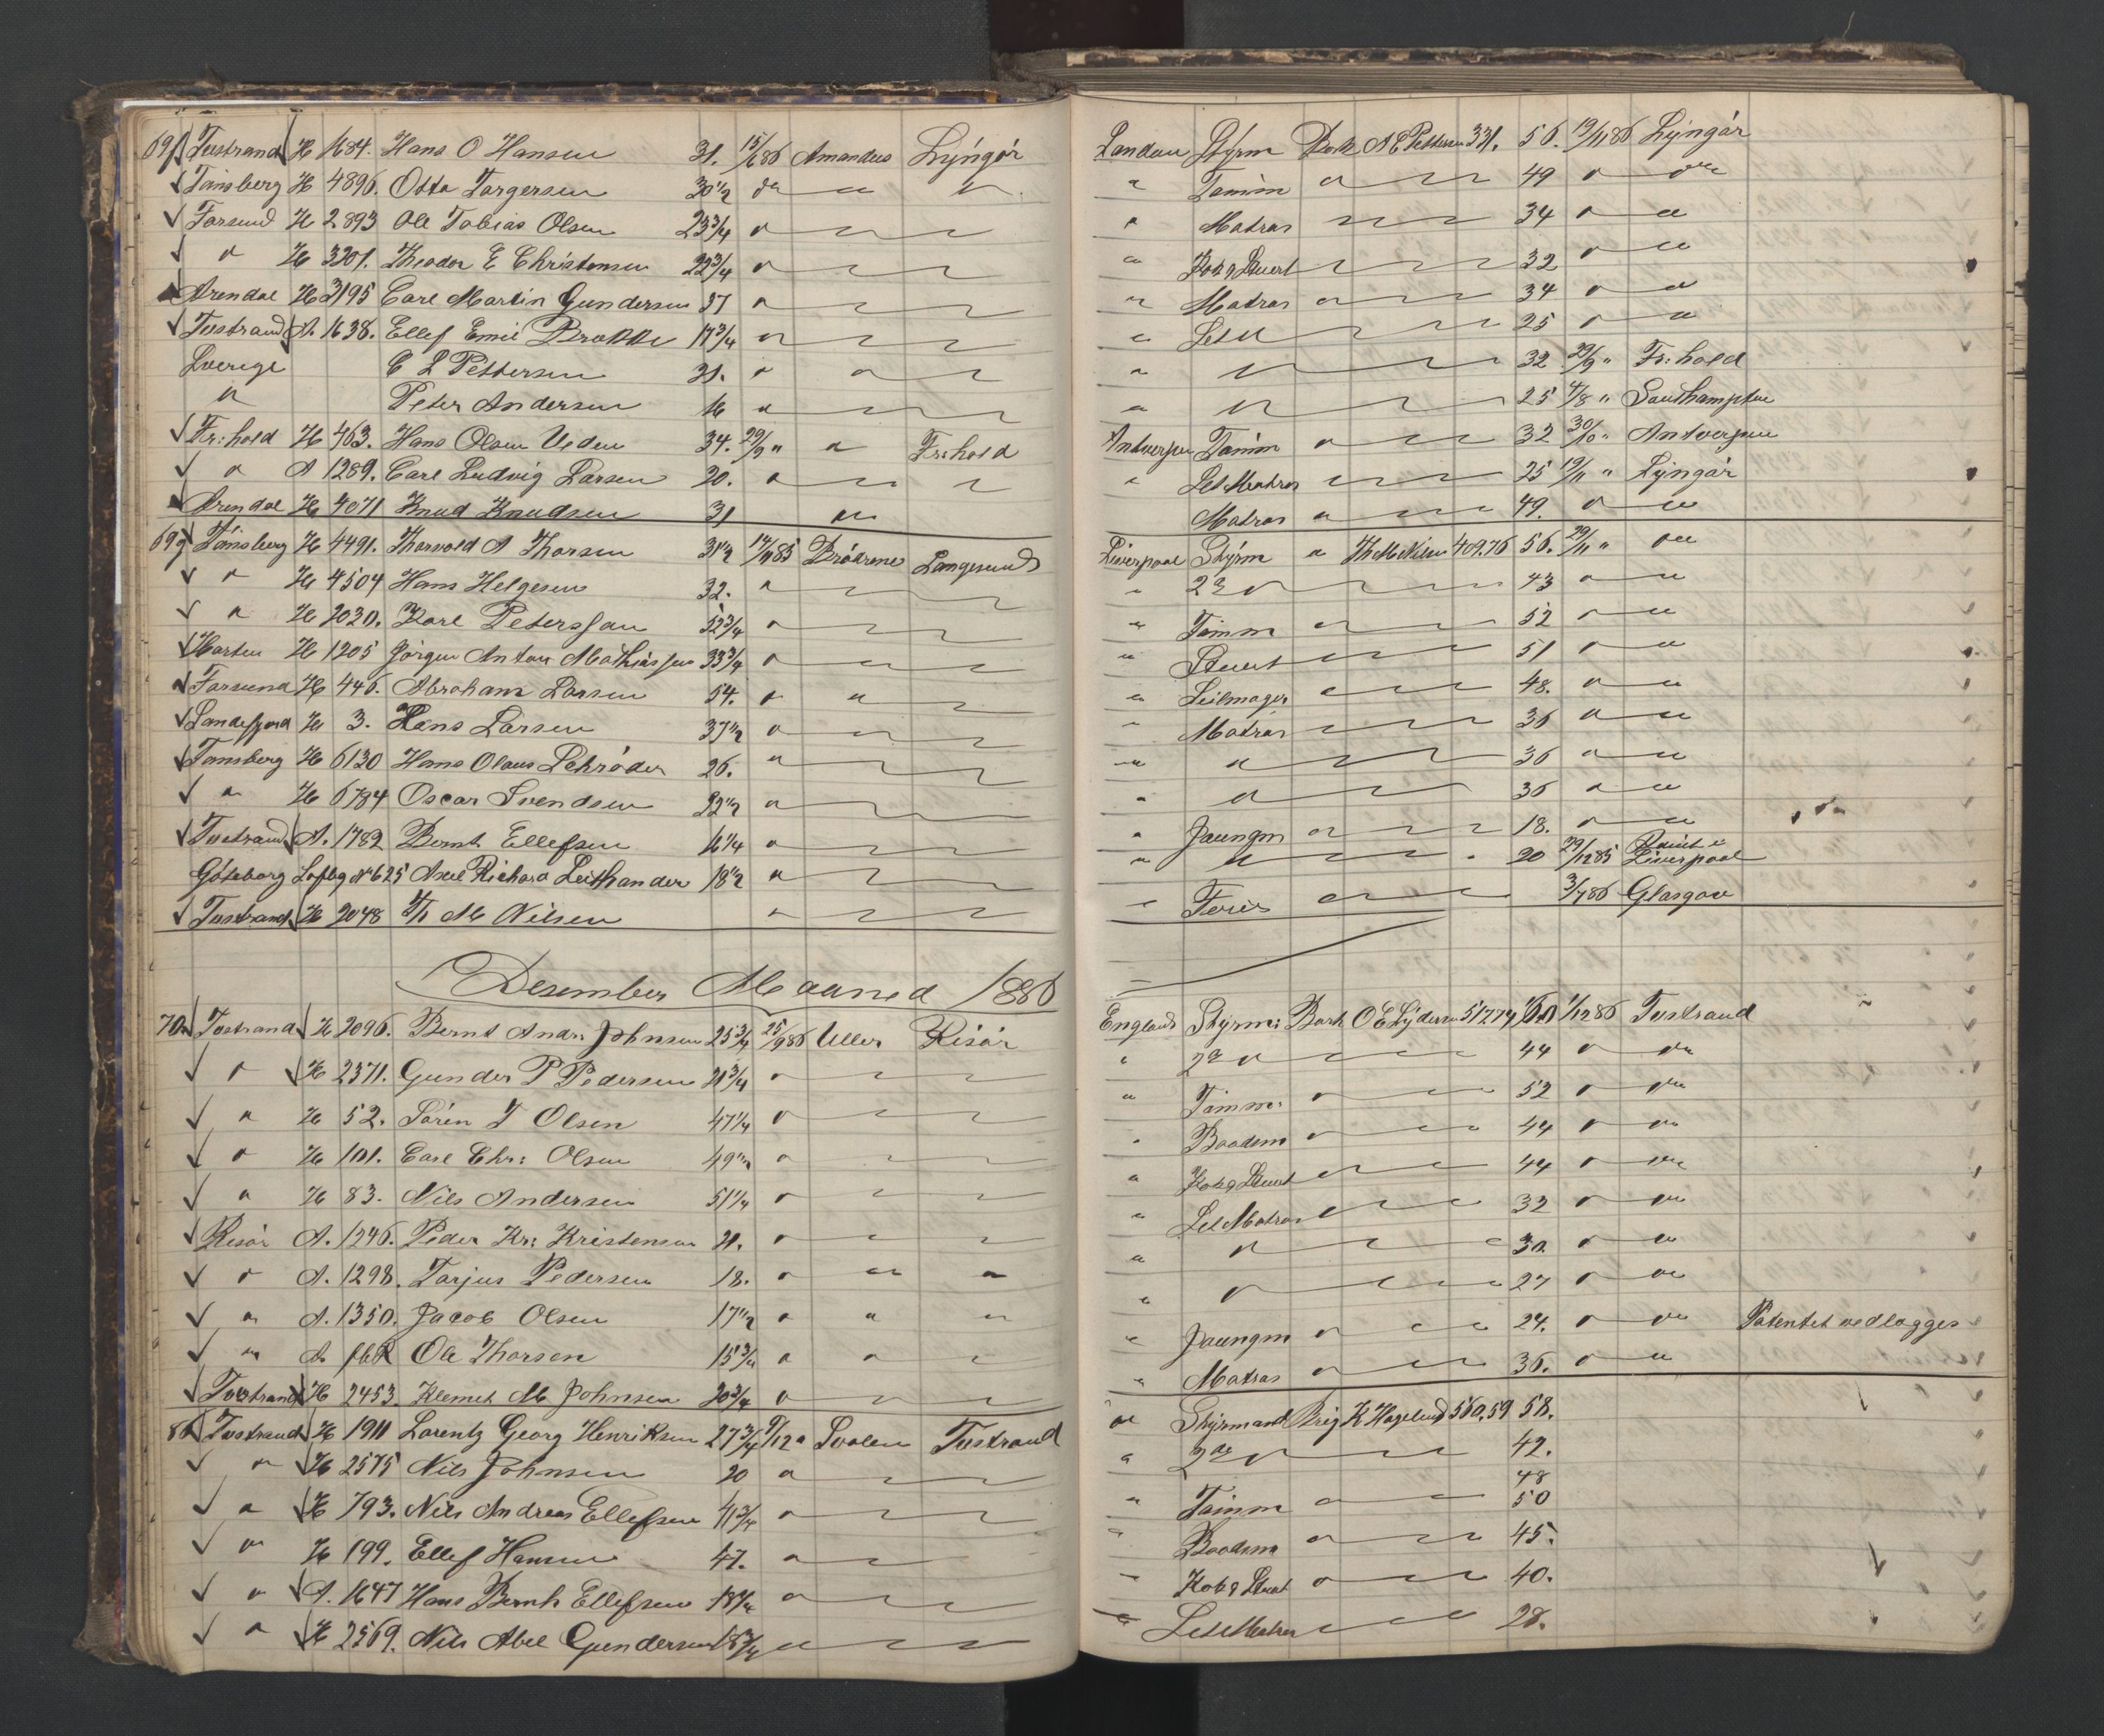 Tvestrand H 1684. Hans O Hansen 31. 15/6 86 Amandus Lyngör
Tönsberg H 4896. Otto Torgersen 30 1/2 do " "
Farsund H 2893 Ole Tobias Olsen 23 3/4 "
" H 3201. Theodor E Christensen 22 3/4 "
Arendal H 3195 Carl Martin Gundersen 37 "
Tvestrand A. 1638. Ellef Emil Brokke 17 3/4 "
Sverige C L Pettersen 31. "
" Peter Andersen 16 "
Fr:hald H 463. Hans Olsen Veden 34. 29/9 " " Fr:hald
" A 1289. Carl Ludvig Larsen 20. "
Arendal H 4071 Knud Knudsen 31 "
Tönsberg H 4491. Thorvold A Thorsen 31 1/2 14/9 85 Brödrene Langesund
" H 4504 Hans Helgesen 32. "
" H 2030. Karl Petersson 52 3/4 "
Horten H 1205 Jörgen Anton Mathiassen 33 3/4 "
Farsund H 446. Abraham Larsen 54. " "
Sandefjord H 3. Hans Larsen 37 1/2 "
Tönsberg H 6130 Hans Olaus Schröder 26. "
" H 6784 Oscar Svendsen 22 1/2 "
Tvestrand A. 1782 Bernt Ellefsen 16 1/4 "
Göteborg Axel Richard 18 1/2 "
Tvestrand H 2048 Th M Nilsen "
Desember Maaned 1886
Tvestrand H 2096. Bernt Andr: Johnsen 25 3/4 25/9 86 Uller Risör
" H 2371. Gunder P Pedersen 21 3/4 "
" H 52. Sören T Olsen 47 1/4 "
" H 101. Carl Chr: Olsen 49 1/2 "
" H 83. Nils Andersen 51 1/4 "
Risör A. 1246. Peder Kr: Kristensen 21. "
" A. 1298. Tarjus Pedersen 18. " " "
" A. 1350. Jacob Olsen 17 1/2 " " "
" A. Ole Thorsen 15 3/4 " "
Tvestrand H 2453. Klemet M Johnsen 20 3/4 "
Tvestrand H 1911 Lorentz Georg Henriksen 27 3/4 9/12 " Svalen Tvestrand
" H 2575 Nils Johnsen 20 "
" H 793. Nils Andreas Ellefsen 41 3/4 "
" H 199. Ellef Hansen 47. "
" A. 1647 Hans Bernh Ellefsen 18 3/4 "
" H 2569. Nils Abel Gundersen 18 3/4 "
London Styrm Bark A E Pettersen 331. 56. 19/11 86 Lyngör
" Tömm " 49 " "
" Matros 34 " "
" Kok & Stuert 32 " "
" Matros " 34 " "
" Let M 25 " "
" " 32 29/9 " Fr:hald
" " 25 4/8 " Southampton
Antverpen Tömm " 32 30/10 " Antverpen
" Let Matros 25 19/11 " Lyngör
Matros " 49. " "
Liverpool Styrm " Th M Nilsen 409.76 56. 29/11 " "
" 2d " 43 " "
" Tömm " 52 " "
" Stuert 51 " "
" Seilmager 48. " "
" Matros 36 " "
" " 36 " "
" " 36 " "
" Jaungm " 18. " "
" " 20 29/12 85 Liverpool
" Förer " 3/7 86 Glasgow
England Styrm: Bark O E 1/12 86 Tvestrand
" 2d " 44 " "
" Tömm: " 52 " "
" Baadsm " 44 " "
" Kok & Stuert 44 " "
" Let Matros 32 " "
" " 30 " "
" " 27 " "
" Jaungm " 24. " " Patentet vedlagges
" Matros " 36. " "
" Styrmand Brig K Hagelund 560,59 58.
" 2de " 42.
48
" Tömm " 50
" Baadsm " 45.
" Kok & Stuert " 40.
" Let Matros 28.